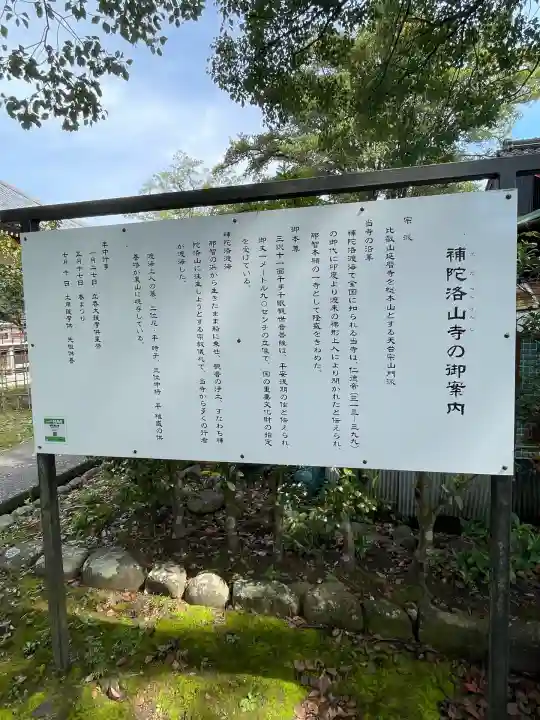 補陀洛山寺の御案内
宗派
比叡山延暦寺を総本山とする天台宗山門派
当寺の沿革
補陀洛渡海で全国に知られる当寺は、仁徳帝(三一三-三九九)
の御代に印度より渡来の裸形上人により開かれたと伝えられ、
那智本願の一寺として隆盛をきわめた。
御本尊
三貌十一面千手千眼観世音菩薩は、平安後期の作と伝えられ、
御丈一メートル九〇センチの立像で、国の重要文化財の指定
を受けている。
補陀洛渡海
那智の浜から生きたまま船に乗せ、観音の浄土、すなわち補
陀洛山に往生しようとする宗教儀礼で、当寺から多くの行者
が渡海した。
渡海上人の墓、二位尼 平 時子、三位中将 平 維盛の供
養塔が裏山に現存している。
年中行事
一月二十七日 立春大護摩供星祭
五月十七日 春まつり
七月十日 土用護摩供 先祖供養